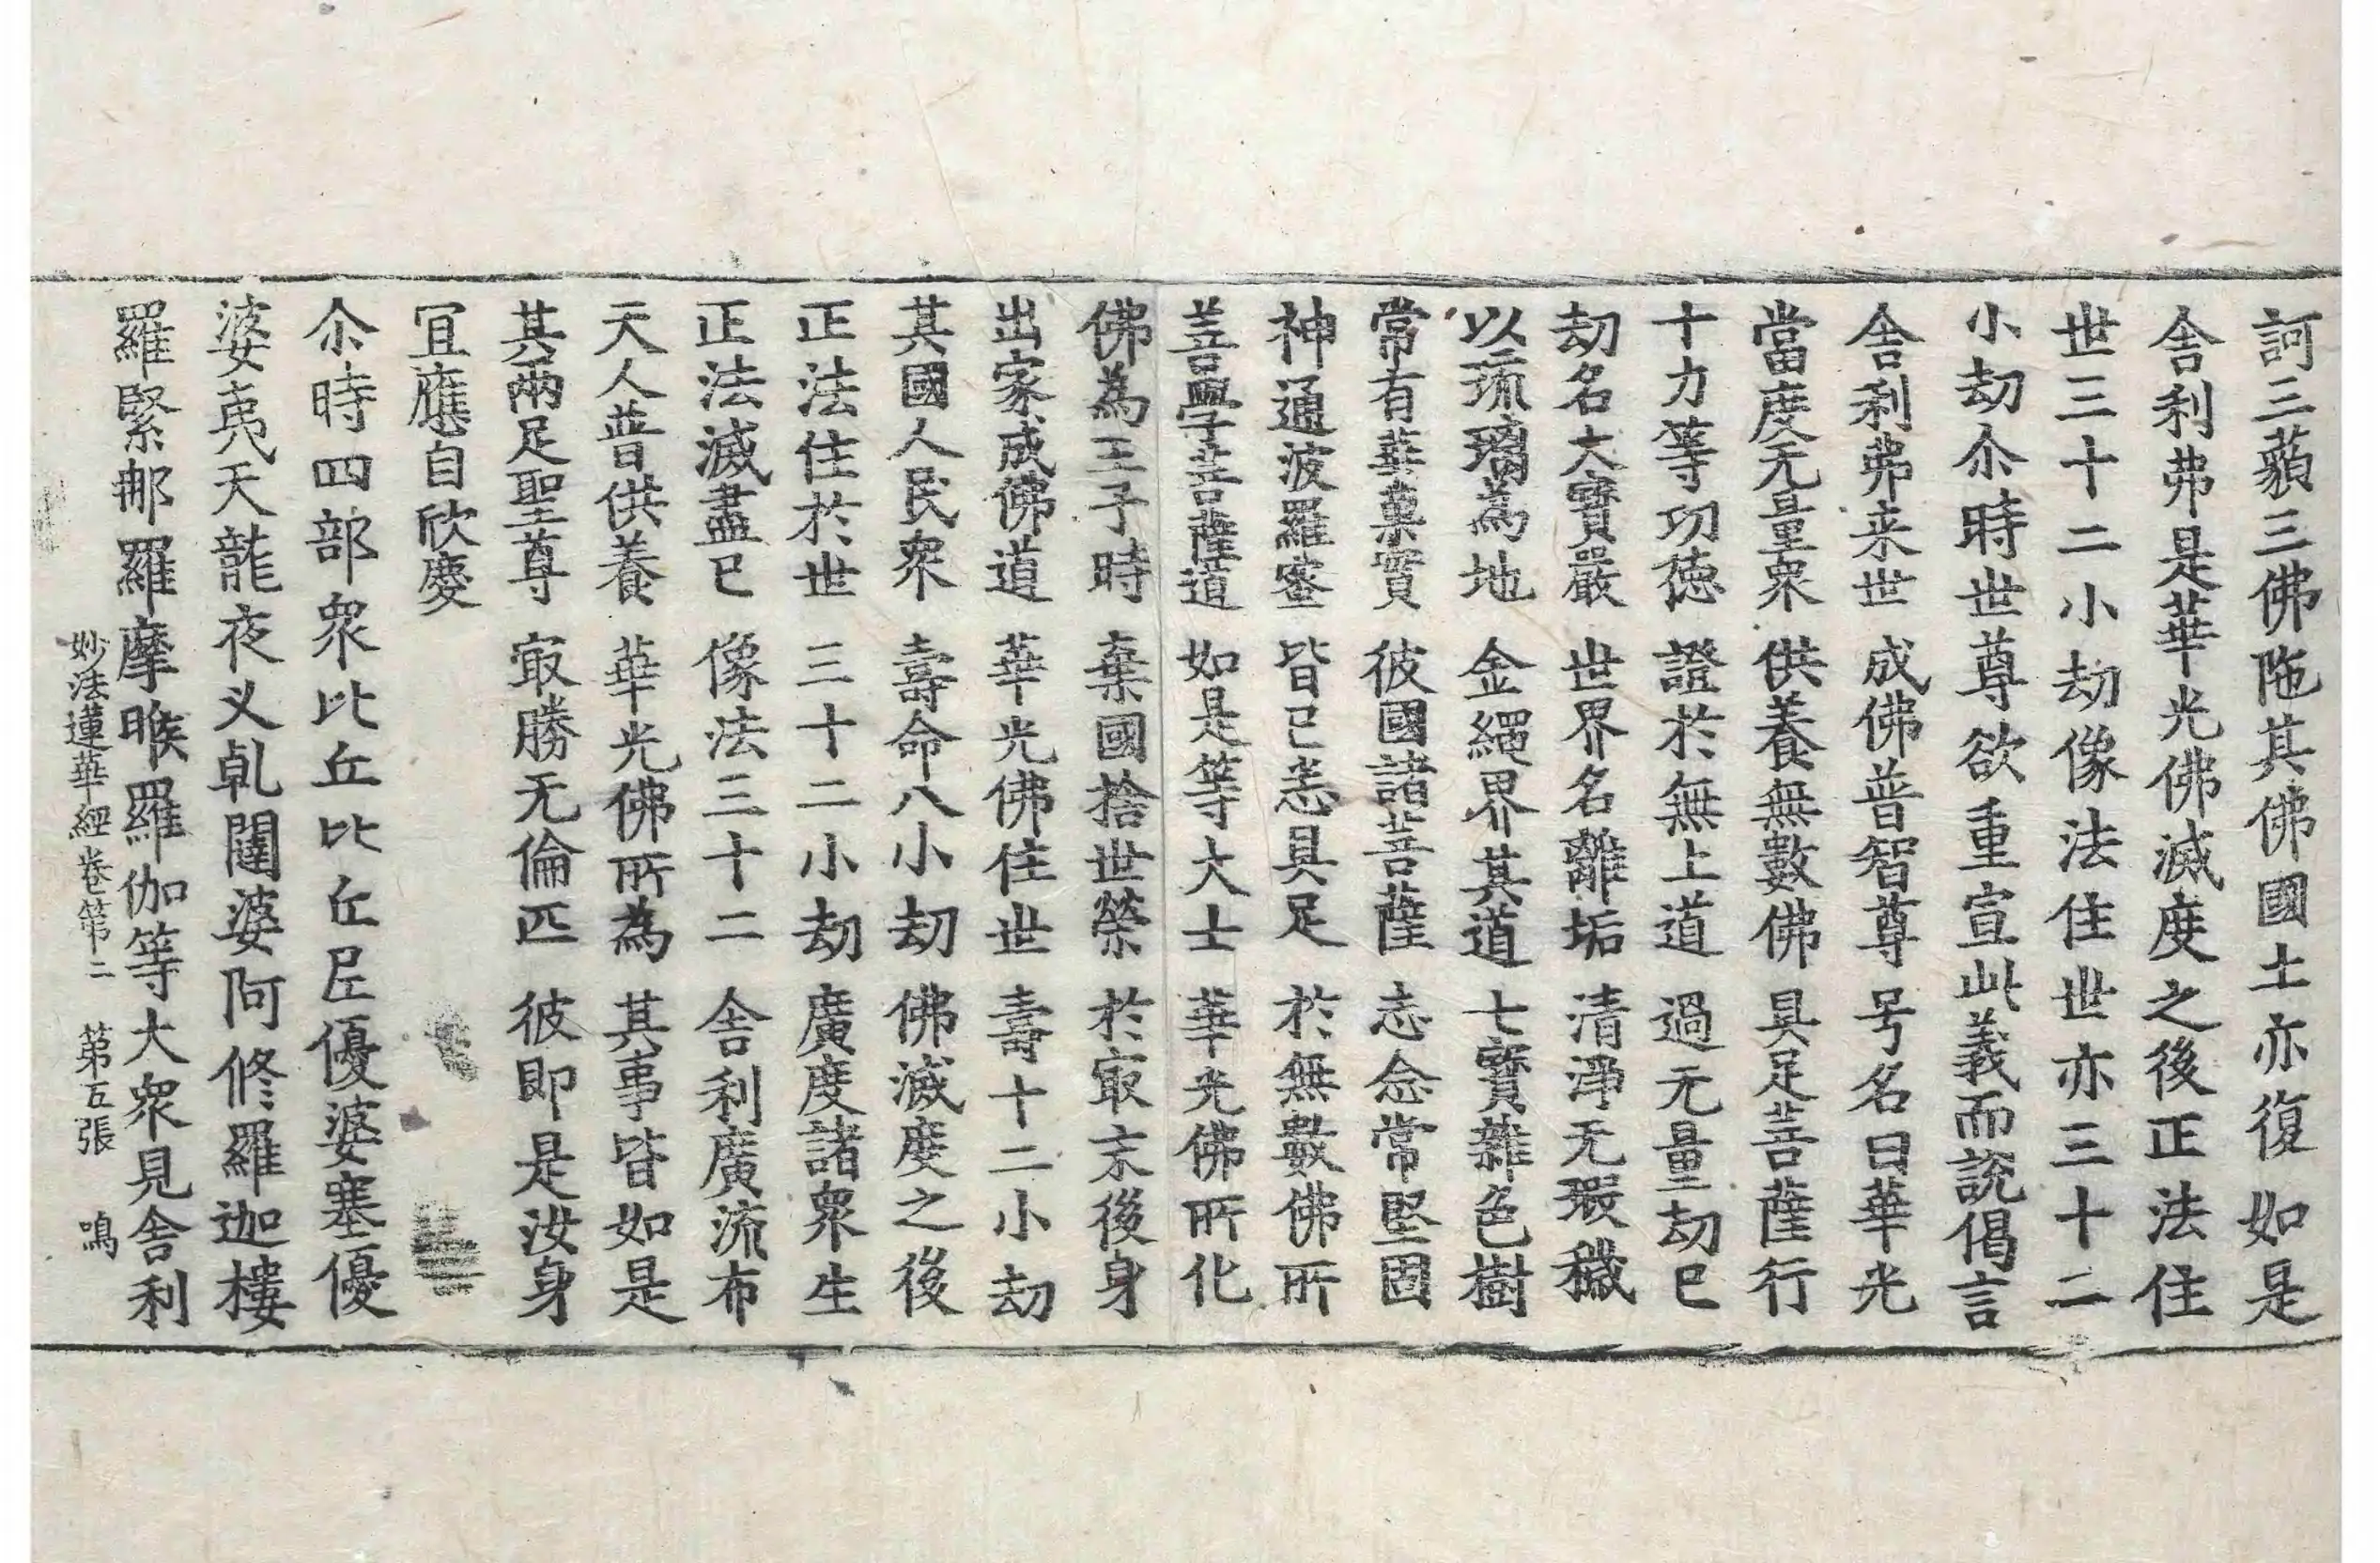 訶三藐三佛陁其佛國土亦復如是
舎利弗是華光佛滅度之後正法住
世三十二小劫像法住世亦三十二
小劫尒時世尊欲重宣此義而說偈言
舎利弗来世 成佛普智尊 号名曰華光
當度无量衆 供養無數佛 具足菩薩行
十力等功徳 證於無上道 過无量劫已
劫名大寶嚴 世界名離垢 清淨无瑕穢
以琉璃為地 金繩界其道 七寶雜色樹
常有華菓實 彼國諸菩薩 志念常堅固
神通波羅蜜 皆已悉具足 於無數佛所
善學菩薩道 如是等大士 華光佛所化
佛為王子時 棄國捨世榮 於㝡末後身
出家成佛道 華光佛住世 壽十二小劫
其國人民衆 壽命八小劫 佛滅度之後
正法住於世 三十二小劫 廣度諸衆生
正法滅盡已 像法三十二 舎利廣流布
天人普供養 華光佛所為 其事皆如是
其兩足聖尊 㝡勝无倫匹 彼即是汝身
冝應自欣慶
尒時四部衆比丘比丘尼優婆塞優
婆夷天龍夜义乹闥婆阿修羅迦樓
羅緊那羅摩睺羅伽等大衆見舎利
妙法蓮華經卷第二 第五張 鳴